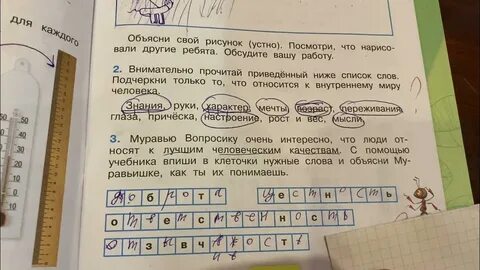 для каждого
Объясни свой рисунок (устно). Посмотри, что нарисо-
вали другие ребята. Обсудите вашу работу.
2. Внимательно прочитай приведённый ниже список слов.
Подчеркни только то, что относится к внутреннему миру
человека.
Знания, руки, характер, мечты, возраст, переживания,
глаза, причёска, настроение, рост и вес, мысли.
3. Муравью Вопросику очень интересно, что люди от-
носят к лучшим человеческим качествам. С помощью
учебника впиши в клеточки нужные слова и объясни Му-
равьишке, как ты их понимаешь.
доброта честность
ответственность
отзывч ость
ив
50
40
30
20
10
0
10